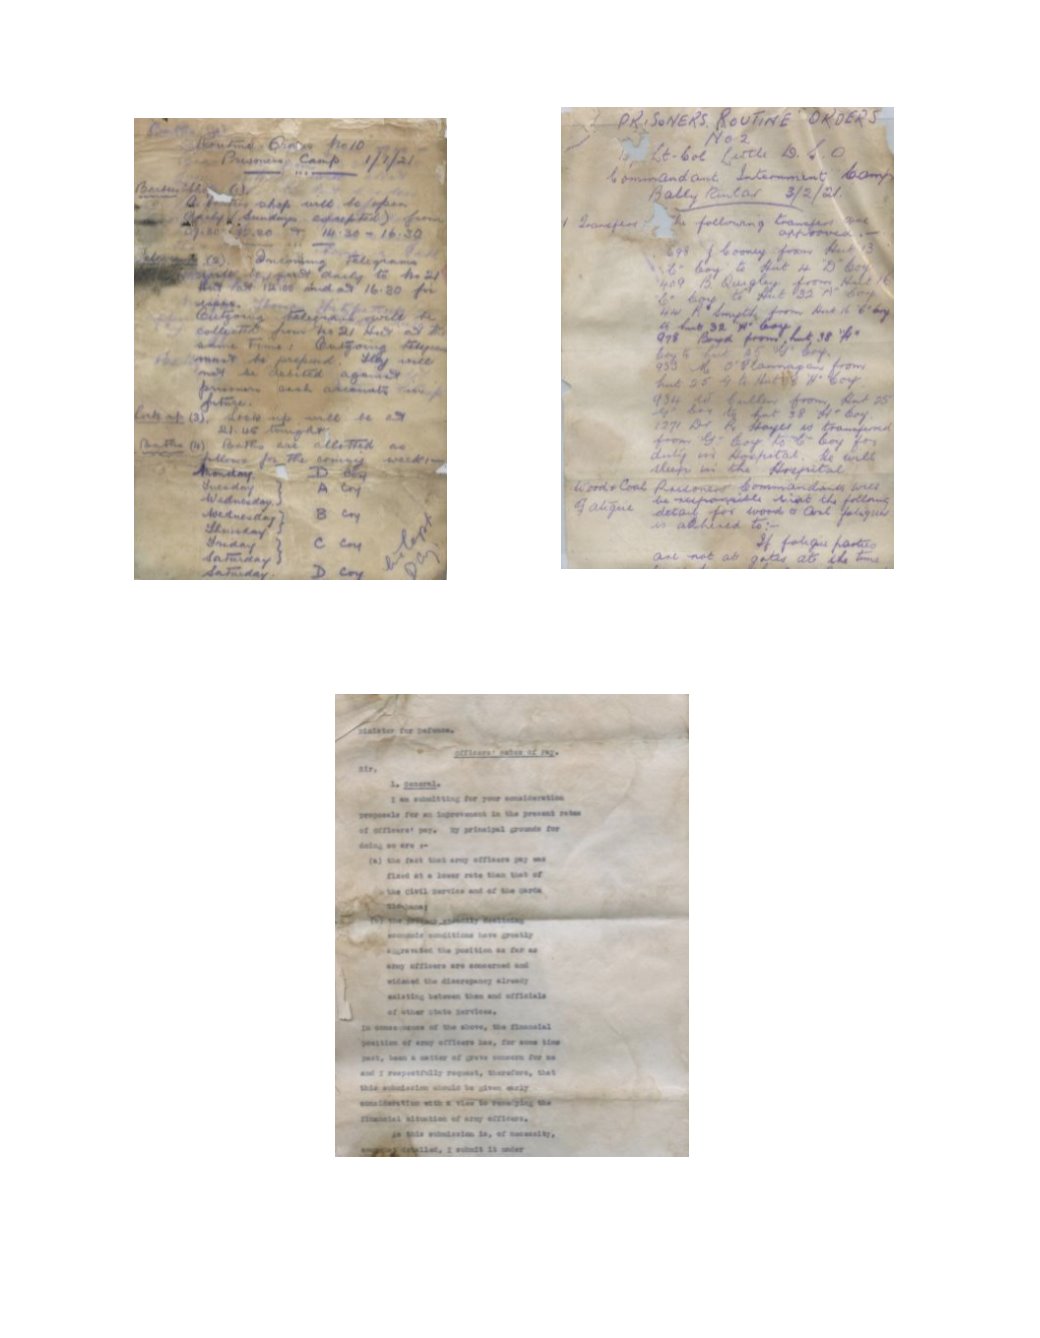 Routine Orders No 10
Prisoners Camp 1/7/21
(1).
A shop will be open
daily (Sundays excepted) from
14.30 - 16.30
(2). Incoming telegrams
will be daily to No 21
Hut at 12.00 and at 16.30 for
Outgoing telegrams will be
collected from No 21 Hut at the
same time: Outgoing
must be prepaid. They will
not be debited against
prisoners cash accounts in
future.
Lock up (3). Lock up will be at
21.45 tonight
Baths (4) Baths are allotted as
follows for the coming week:—
Monday D Coy
Tuesday } A Coy
Wednesday
Wednesday } B Coy
Thursday
Friday } C Coy
Saturday
Saturday D Coy
PRISONERS ROUTINE ORDERS
No 2
Lt-Col Little D.S.O
Commandant Internment Camp
Bally Kinlar 3/2/21.
1 Transfers. The following transfers are
approved.—
698 J Cooney from Hut 13
"C" Coy to Hut 4 "D" Coy
409 B Quigley from Hut 16
"C" Coy to Hut 32 "A" Coy
Smyth from Hut 16 "C" Coy
to hut 32 "A" Coy
978 Boyd from hut 38 "H"
Coy to hut 25 "G" Coy.
953 O'Flannagan from
hut 25 to Hut "H" Coy
934 W Cullen from Hut 25
"G" Coy to hut 38 "H" Coy.
1271 Dr R. Hayes is transferred
from "G" Coy to "C" Coy for
duty in Hospital. He will
sleep in the Hospital
Wood & Coal Prisoners Commandants will
Fatigue be responsible that the following
detail for wood & coal fatigues
is adhered to:—
If fatigue parties
are not at gates at the time
Minister for Defence.
Officers' Rates of Pay.
Sir,
1. General.
I am submitting for your consideration
proposals for an improvement in the present rates
of officers' pay. My principal grounds for
doing so are :-
(a) the fact that army officers pay was
fixed at a lower rate than that of
the Civil Service and of the Garda
Siochana;
(b) the present steadily declining
economic conditions have greatly
aggravated the position as far as
army officers are concerned and
widened the discrepancy already
existing between them and officials
of other State Services.
In consequence of the above, the financial
position of army officers has, for some time
past, been a matter of grave concern for me
and I respectfully request, therefore, that
this submission should be given early
consideration with a view to remedying the
financial situation of army officers.
As this submission is, of necessity,
somewhat detailed, I submit it under